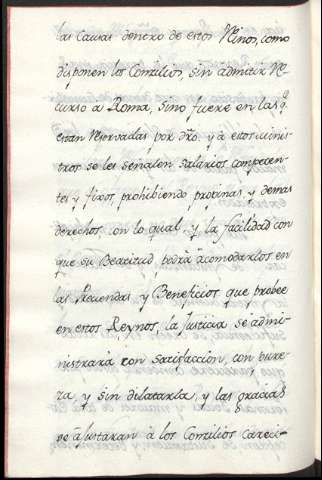 las Causas dentro de estos Reinos, como
disponen los Conzilios, sin admitir Re-
curso a Roma, sino fuere en las q.
estan reservadas por dro. y à estos minis-
tros se les señalen salarios competen-
tes y fixos prohibiendo propinas, y demas
derechos con lo qual, y la facilidad con
que su Beatitud podrà acomodarlos en
las Preuendas y Beneficios que probee
en estos Reynos, la Justicia se admi-
nistrarà con satisfaccion, con pure-
za, y sin dilatarla, y las gracias
se ajustaran à los Conzilios carecie-